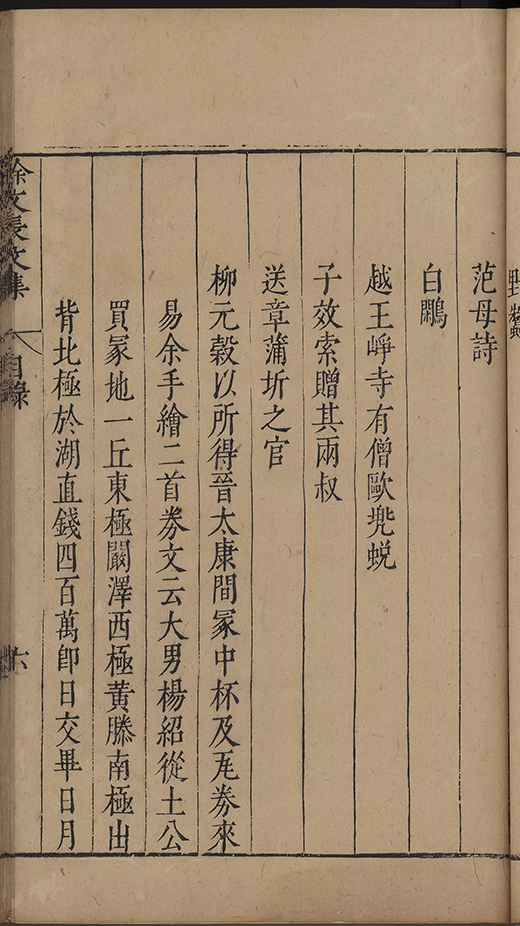 范母詩
白鷴
越王崢寺有僧歐兠蛻
子效索贈其兩叔
送章蒲圻之官
柳元穀以所得晉太康間冢中杯及瓦劵來
易余手繪二首劵文云大男楊紹從土公
買冢地一丘東極闞澤西極黃滕南極出
背北極於湖直錢四百萬卽日交畢日月
徐文長文集
目錄
六